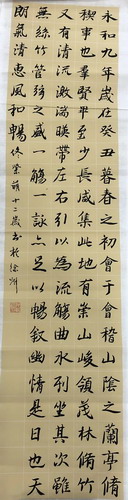 永和九年歲在癸丑暮春之初會于會稽山陰之蘭亭
稧事也羣賢畢至少長咸集此地有崇山峻領茂林脩竹
又有清流激湍暎帶左右引以為流觴曲水列坐其次雖
無絲竹管弦之盛一觴一詠亦足以暢叙幽情是日也天
朗氣清惠風和暢 十二歲书於徐州